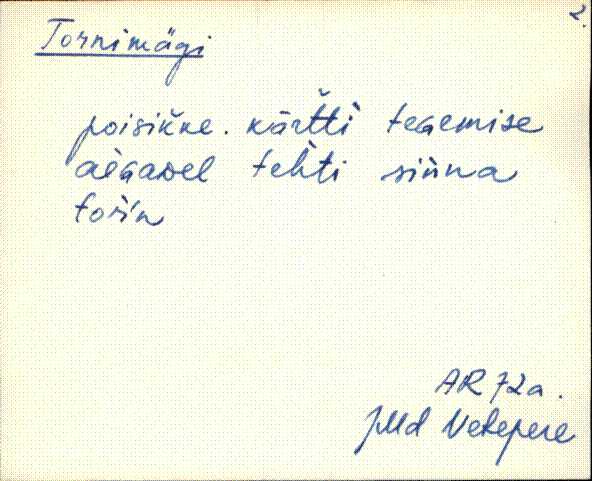 2.
Tornimägi
poisikne. kärtti tegemise
aėgadel tehti sinna
torin
AR 72a.
JMd Vetepere